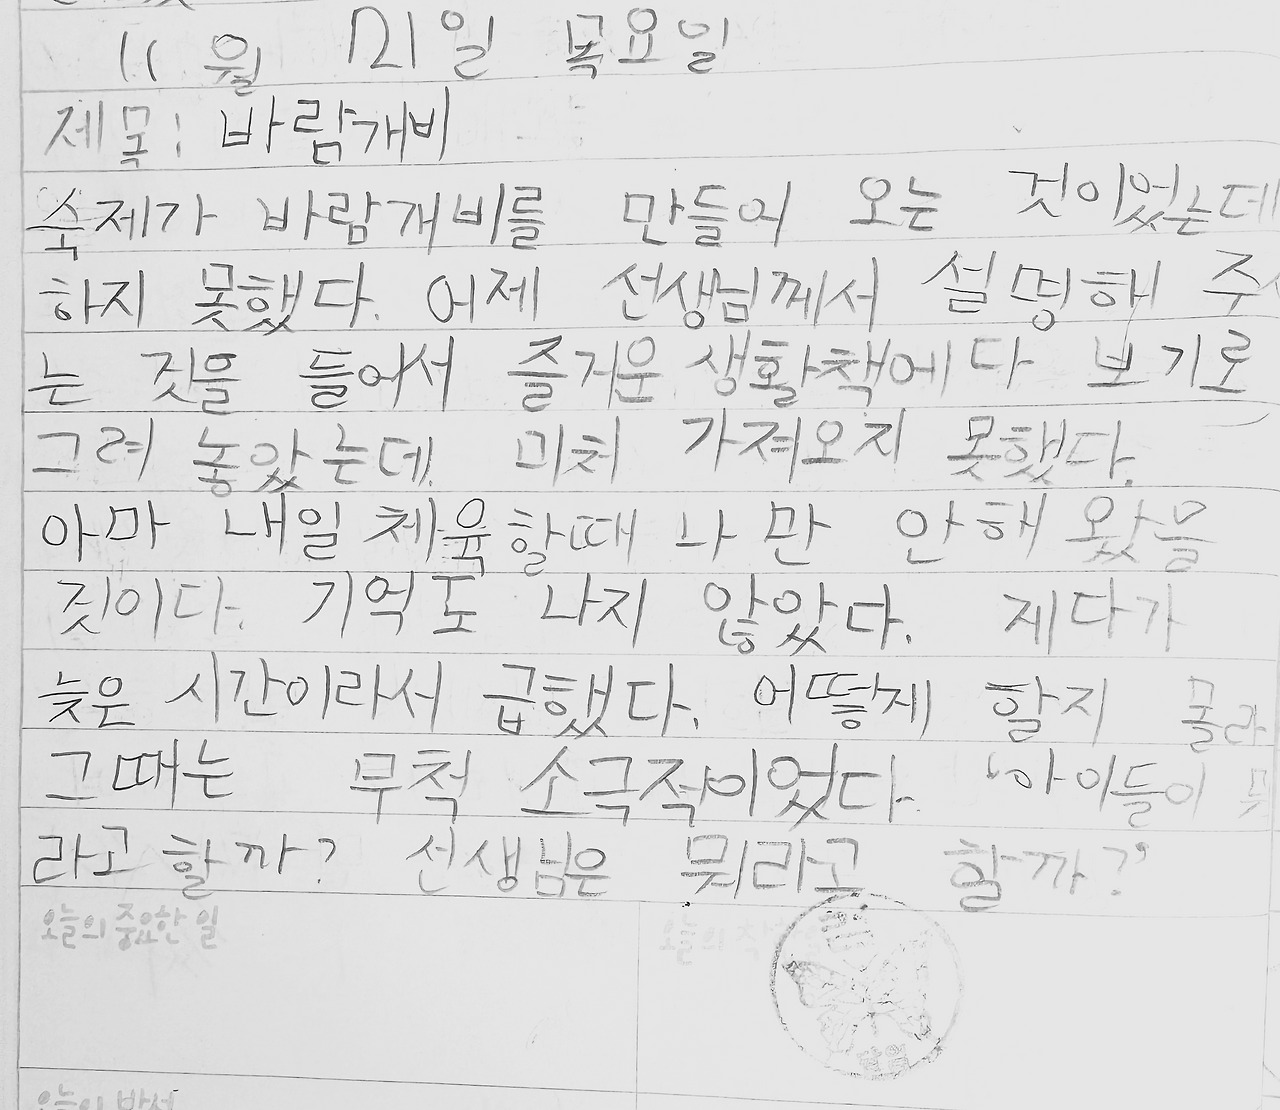 11월 21일 목요일
제목: 바람개비
숙제가 바람개비를 만들어 오는 것이었는데
하지 못했다. 어제 선생님께서 설명해 주시
는 것을 들어서 즐거운 생활책에다 보기로
그려 놓았는데, 미처 가져오지 못했다.
아마 내일 체육할때 나만 안해 왔을
것이다. 기억도 나지 않았다. 제다가
늦은 시간이라서 급했다. 어떻게 할지 몰라
그때는 무척 소극적이었다. '아이들이 뭐
라고 할까? 선생님은 뭐라고 할까?'
오늘의 중요한 일
오늘의